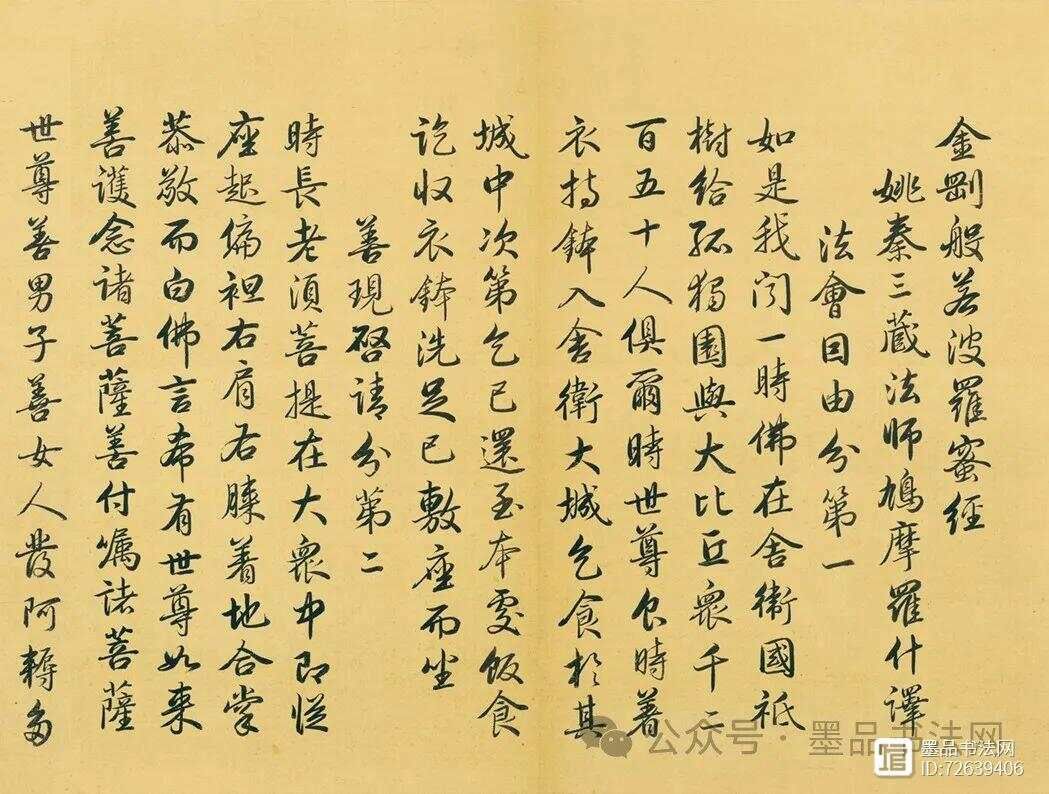 金剛般若波羅蜜經
姚秦三藏法師鳩摩羅什譯
法會因由分第一
如是我聞一時佛在舍衛國祇
樹給孤獨園與大比丘衆千二
百五十人俱爾時世尊食時着
衣持鉢入舍衛大城乞食於其
城中次第乞已還至本處飯食
訖收衣鉢洗足已敷座而坐
善現啓請分第二
時長老須菩提在大衆中即從
座起偏袒右肩右膝着地合掌
恭敬而白佛言希有世尊如来
善護念諸菩薩善付囑諸菩薩
世尊善男子善女人發阿耨多
公众号·墨品书法网
墨品书法网
ID:72639406